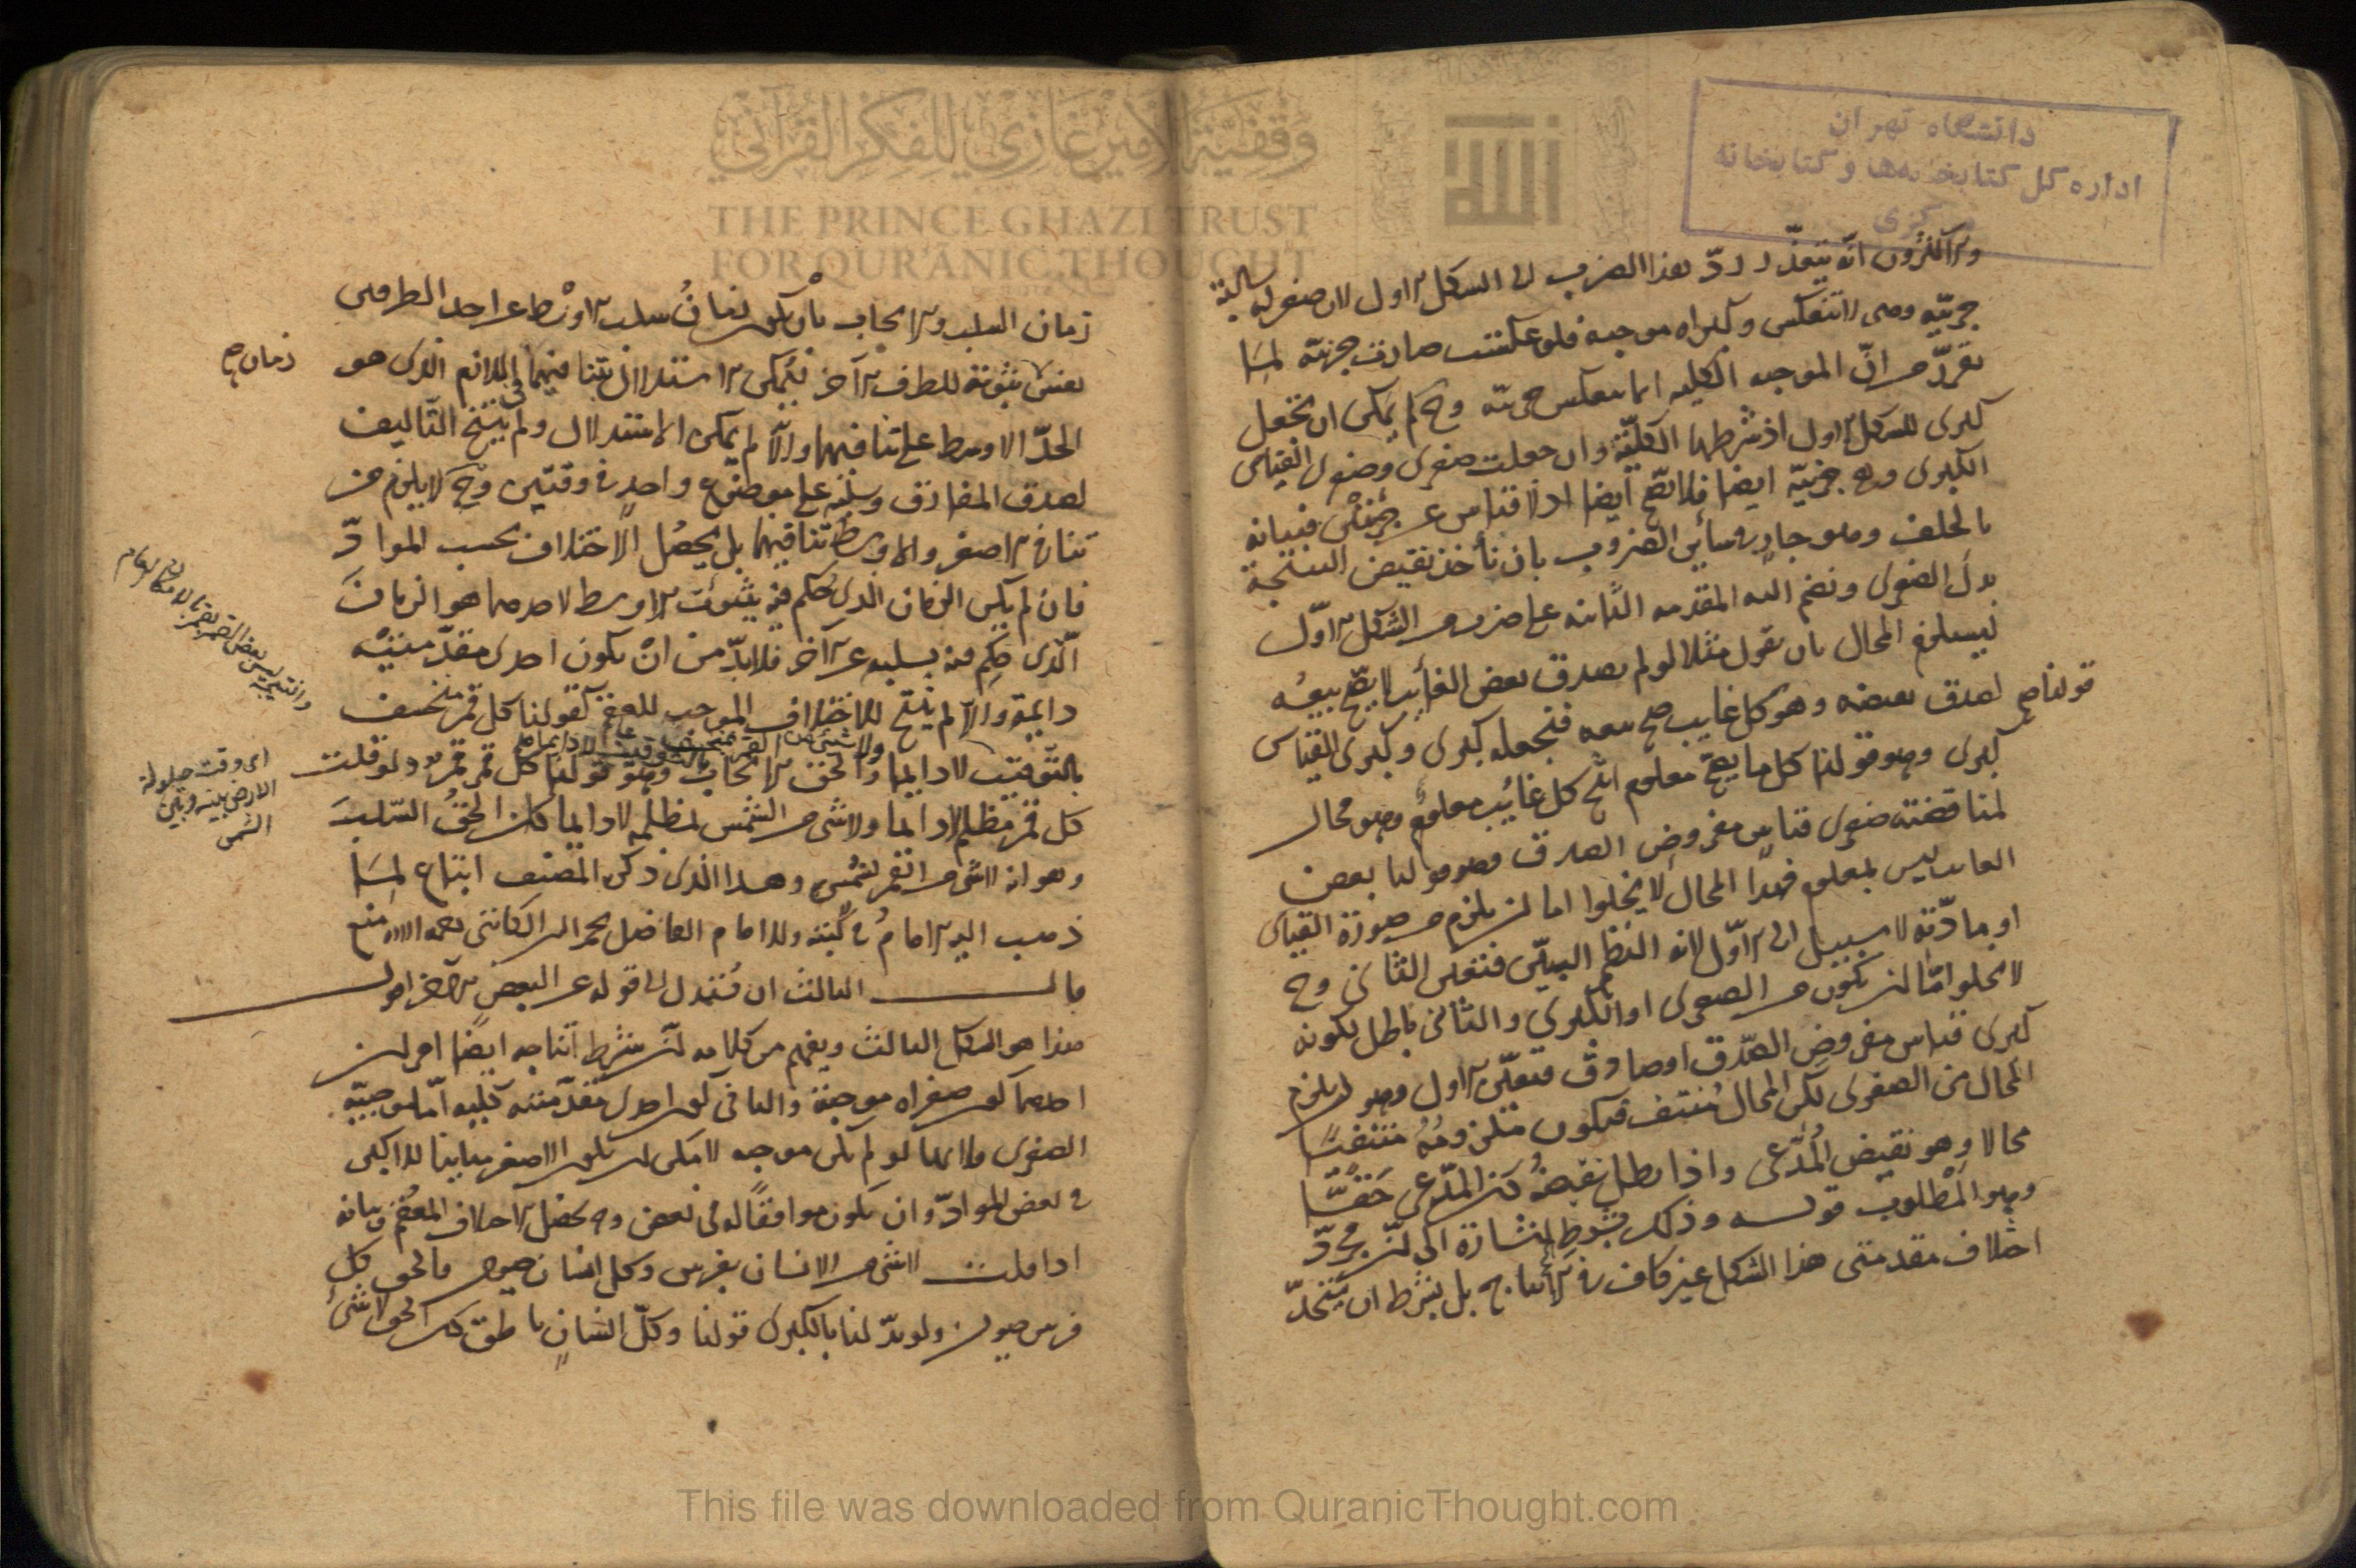 دانشگاه تهران
اداره کل کتابخانه‌ها و کتابخانه
مرکزی
وقفية الأمير غازي للفكر القرآني
THE PRINCE GHAZI TRUST
FOR QURANIC THOUGHT
الله
انه يتعذر ردّ هذا الضرب الى الشكل الاول لان صغراه سالبة
جزئيّة وهى لا تنعكس وكبراه موجبة فلو عكست صارت جزئيّة لما
تقرّر من انّ الموجبه الكليه انما تنعكس جزئيّة وح لم يمكن ان تجعل
كبرى للشكل الاول اذ شرطها الكليّة وان جعلت صغرى وصغرى القياس
الكبرى وهى جزئيّة ايضا فلا تصح ايضا اذ لا قياس عن جزئيتين فبيانه
بالخلف وهو جار فى سائر الضروب بان نأخذ نقيض النتيجة
بدل الصغرى ونضم اليه المقدمه الثانيه على ضرب من الشكل الاوّل
ليستلزم المحال بان نقول مثلا لو لم يصدق بعض الغائب لا يصح بيعه
لصدق نقيضه وهو كل غايب صح بيعه فنجعله كبرى وكبرى القياس
قولنا صح
كبرى وهو قولنا كل ما يصح معلوم انتج كل غائب معلوم وهو محال
لمناقضته صغرى قياس مفروض الصدق وهو قولنا بعض
الغائب ليس بمعلوم فهذا المحال لا يخلوا اما ان يلزم من صورة القياس
او مادّته لا سبيل الى الاوّل لانه النظم البيّن فتعيّن الثانى وح
لا يخلوا امّا ان يكون من الصغرى او الكبرى والثانى باطل لكونه
كبرى قياس مفروض الصّدق او صادق فتعيّن الاول وهو ان يلزم
المحال من الصغرى لكن المحال منتف فيكون ملزومه منتفيًا
محالا وهو نقيض المُدّعى واذا بطل نقيضه كان المدّعى حقًّا
وهو المطلوب قوله وذلك بشرط اشارة الى ان مجرّد
اختلاف مقدمتى هذا الشكل غير كاف فى الانتاج بل يشترط ان يتحد
زمان السلب والايجاب بأن يكون زمان سلب الاوسط عن احد الطرفين
بعينه ثبوته للطرف الآخر ليمكن الاستدلال بتنافيهما فى اللازم الذى هو
زمان صح
الحدّ الاوسط على تنافيهما والّا لم يمكن الاستدلال ولم ينتج التّاليف
لصدق المفارق وسلبه على موضوع واحد فى وقتين وح لا يلزم من
تنافى الاصغر والاوسط تنافيهما بل يحصل الاختلاف بحسب الموادّ
فان لم يكن الزمان الذى حكم فيه بثبوت الاوسط لاحدهما هو الزمان
الّذى حكم فيه بسلبه عن الآخر فلا بدّ من ان يكون احدى مقدّمتيه
دايمة والّا لم ينتج للاختلاف الموجب للعقم كقولنا كل قمر منخسف
ولا شئ من القمر بمنخسف بالتوقيت لا دايما
بالتّوقيت لا دايما والحق الايجاب وهو قولنا كل قمر قمر ولو قلت
كل قمر مظلم لا دايما ولا شئ من الشمس بمظلمه لا دايما كان الحق السّلب
اى وقت حيلولة
الارض بينه وبين
الشمس
وهو انه لا شئ من القمر بشمس وهذا الذى ذكره المصنف اتباع لما
ذهب اليه الامام فى كتبه والامام الفاضل نجم الدين الكاتبى رحمه الله منع
قال الثالث ان تستدل الى قوله عن البعض الآخر اقول
هذا هو الشكل الثالث ويفهم من كلامه ان شرط انتاجه ايضا امران
احدهما كون صغراه موجبة والثانى كون احدى مقدّمتيه كليه امّا موجبيّه
الصغرى فلانها لو لم تكن موجبه لامكن ان يكون الاصغر مباينا للاكبر
فى بعض الموادّ وان يكون موافقًا له فى بعض وح يحصل الاختلاف المعقم وبيانه
اذا قلت لا شئ من الانسان بفرس وكل انسان حيوان فالحق كل
فرس حيوان ولو بدّلنا بالكبرى قولنا وكلّ انسانٍ ناطق كان الحق لا شئ
This file was downloaded from QuranicThought.com